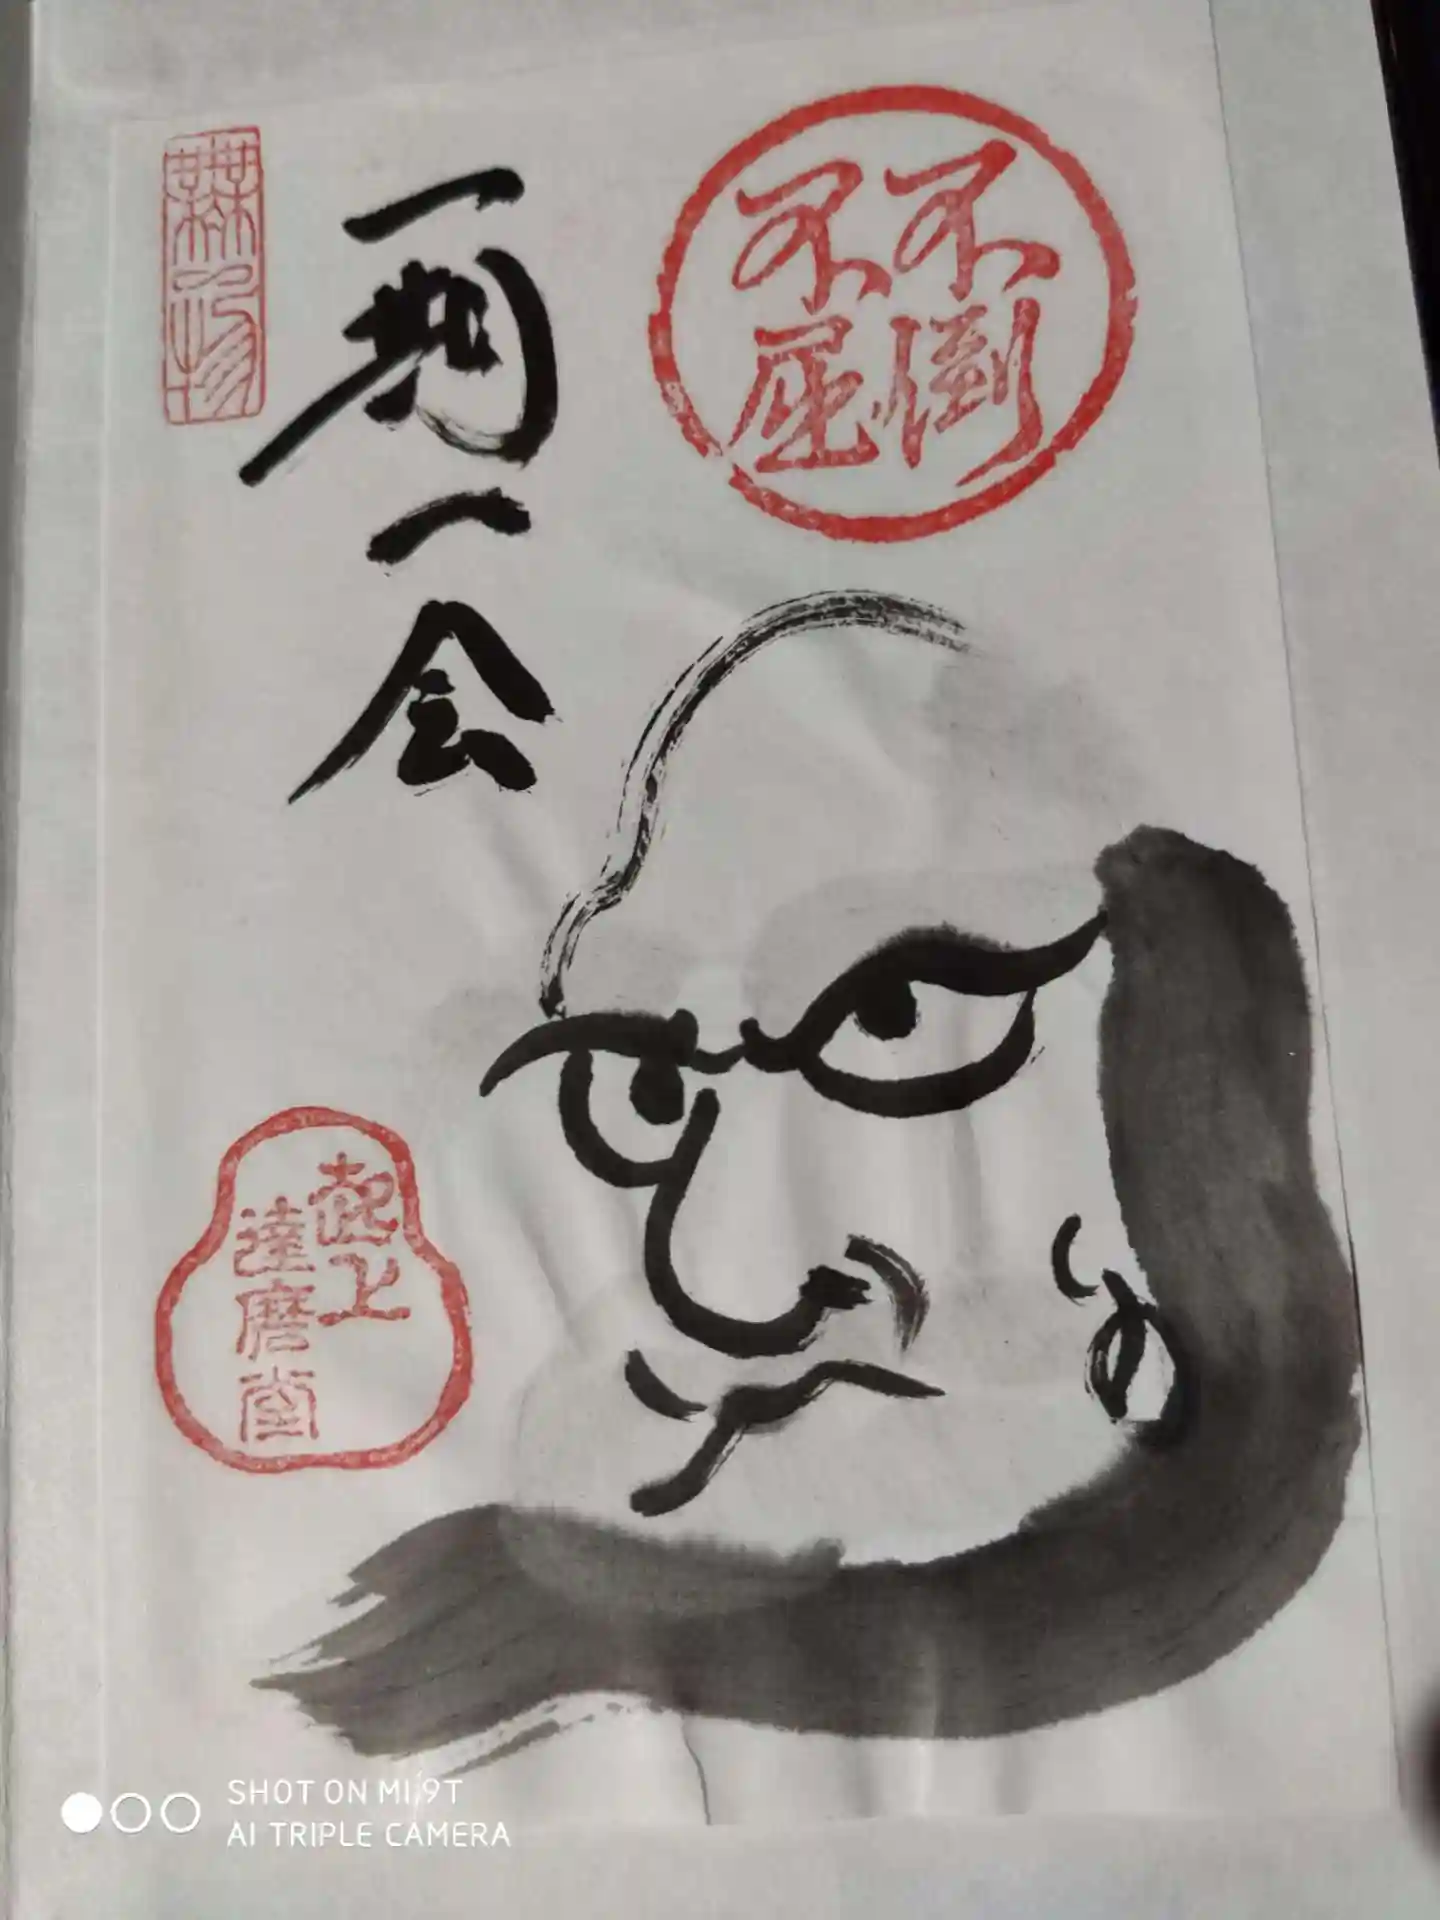 不倒
不屈
一期一会
無一物
起上
達磨堂
SHOT ON MI 9T
AI TRIPLE CAMERA